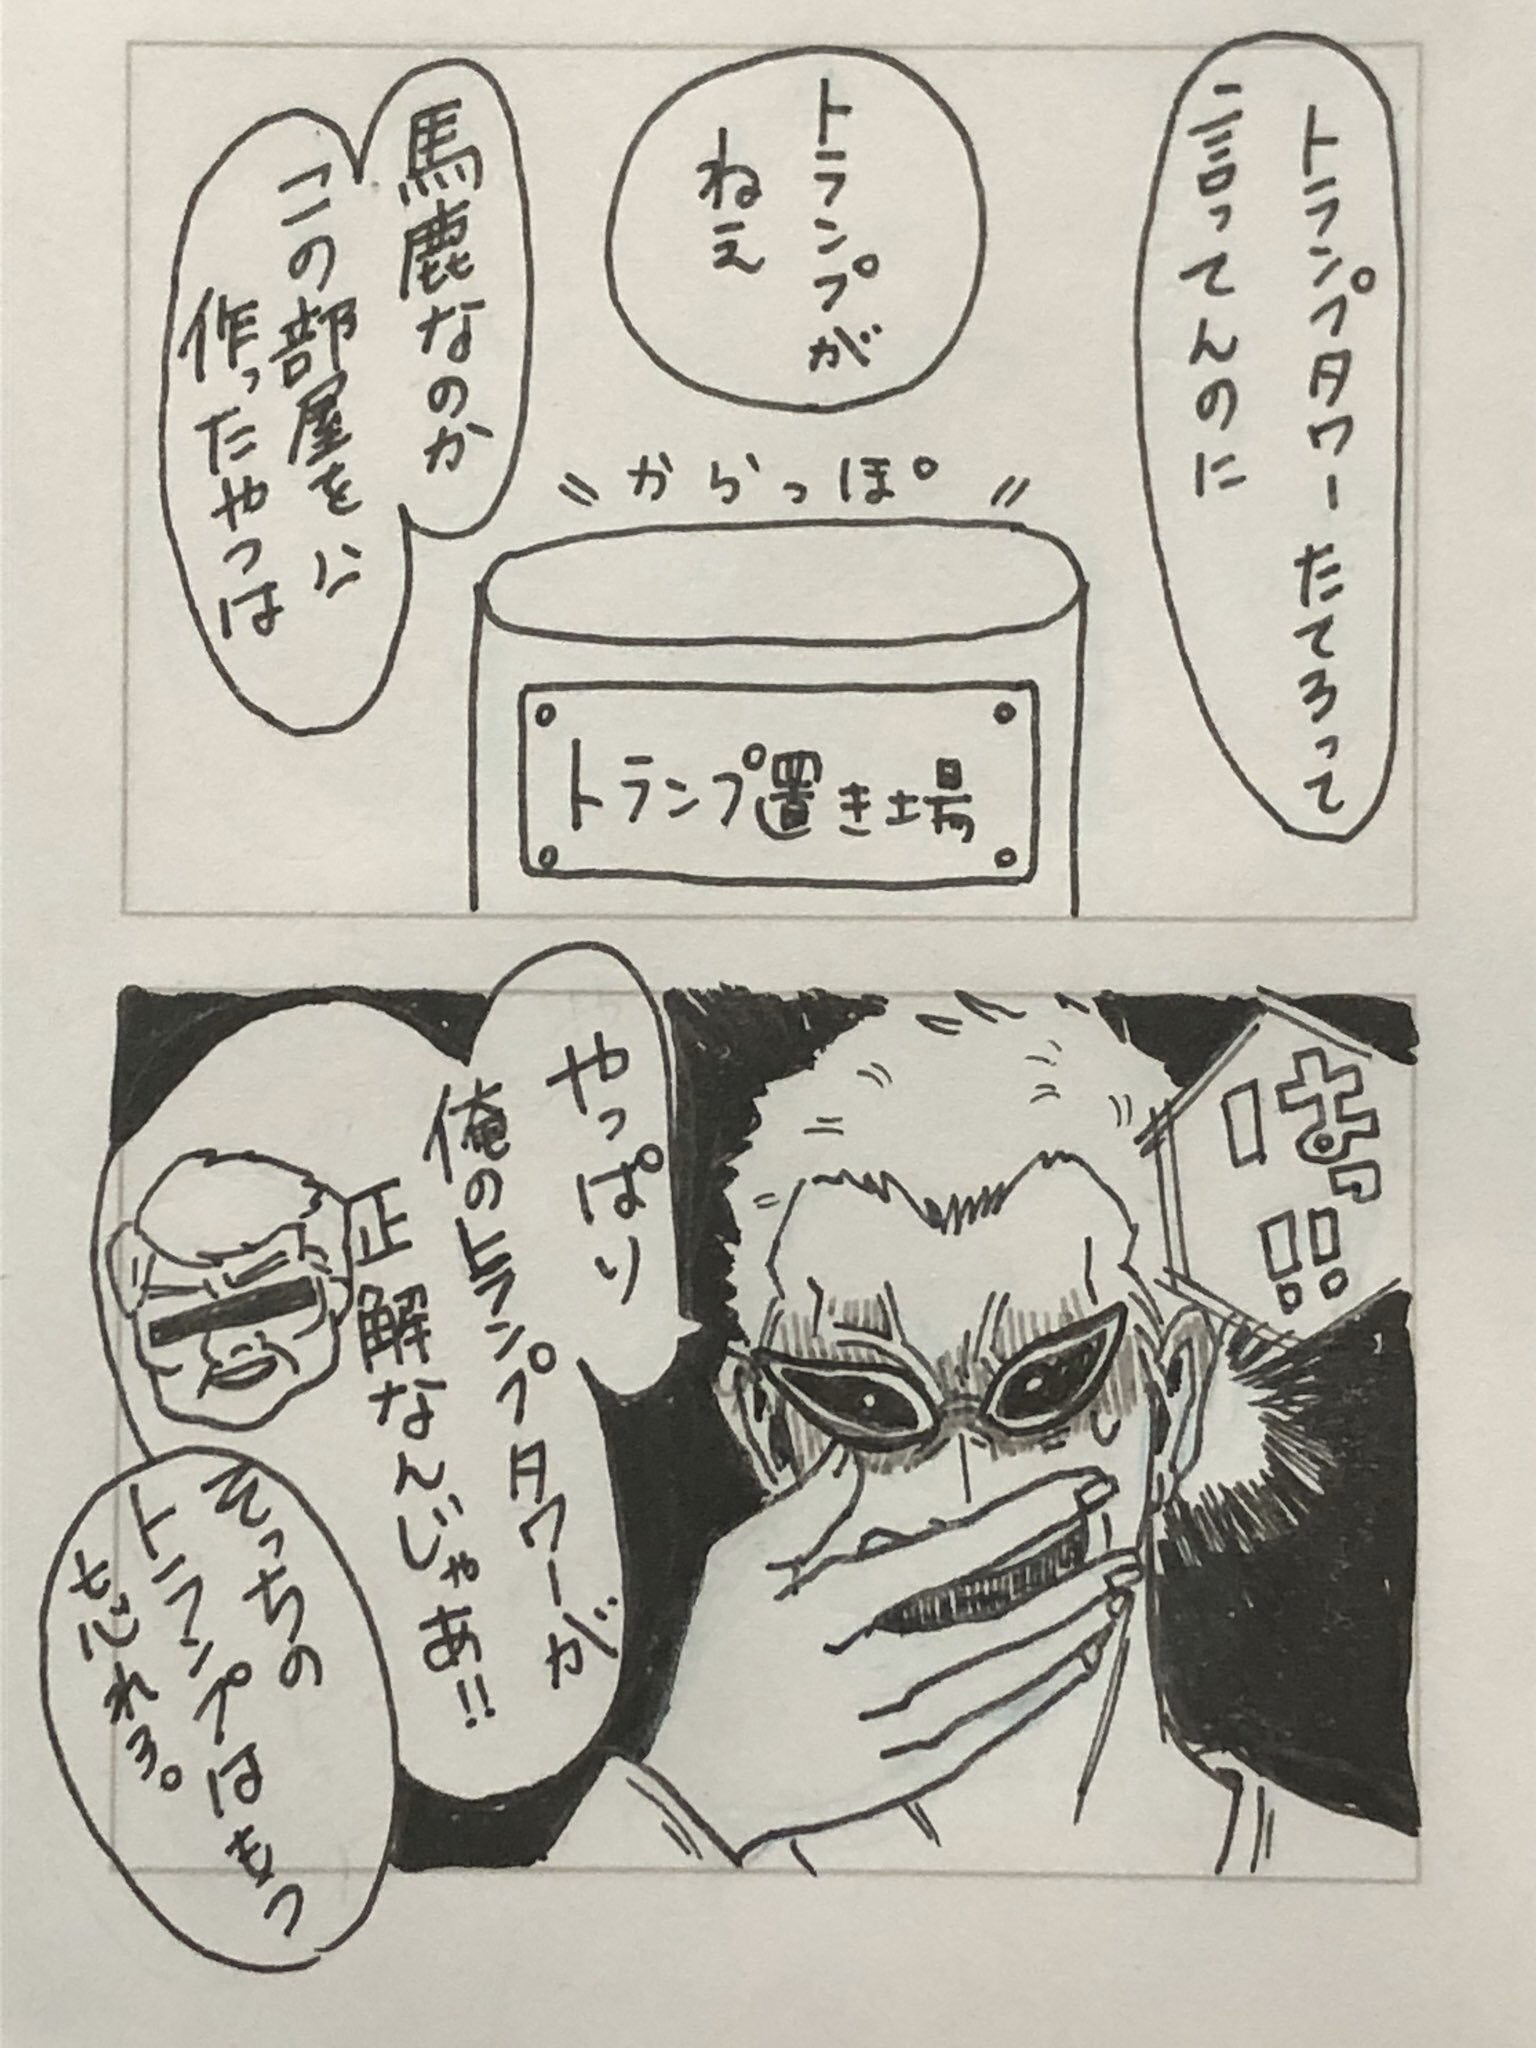 トランプタワーたてろって
言ってんのに
トランプが
ねえ
からっぽ
トランプ置き場
馬鹿なのか
この部屋を
作ったやつは
はっ!!
やっぱり
俺のトランプタワーが
正解なんじゃあ!!
そっちの
トランプはもう
忘れろ。